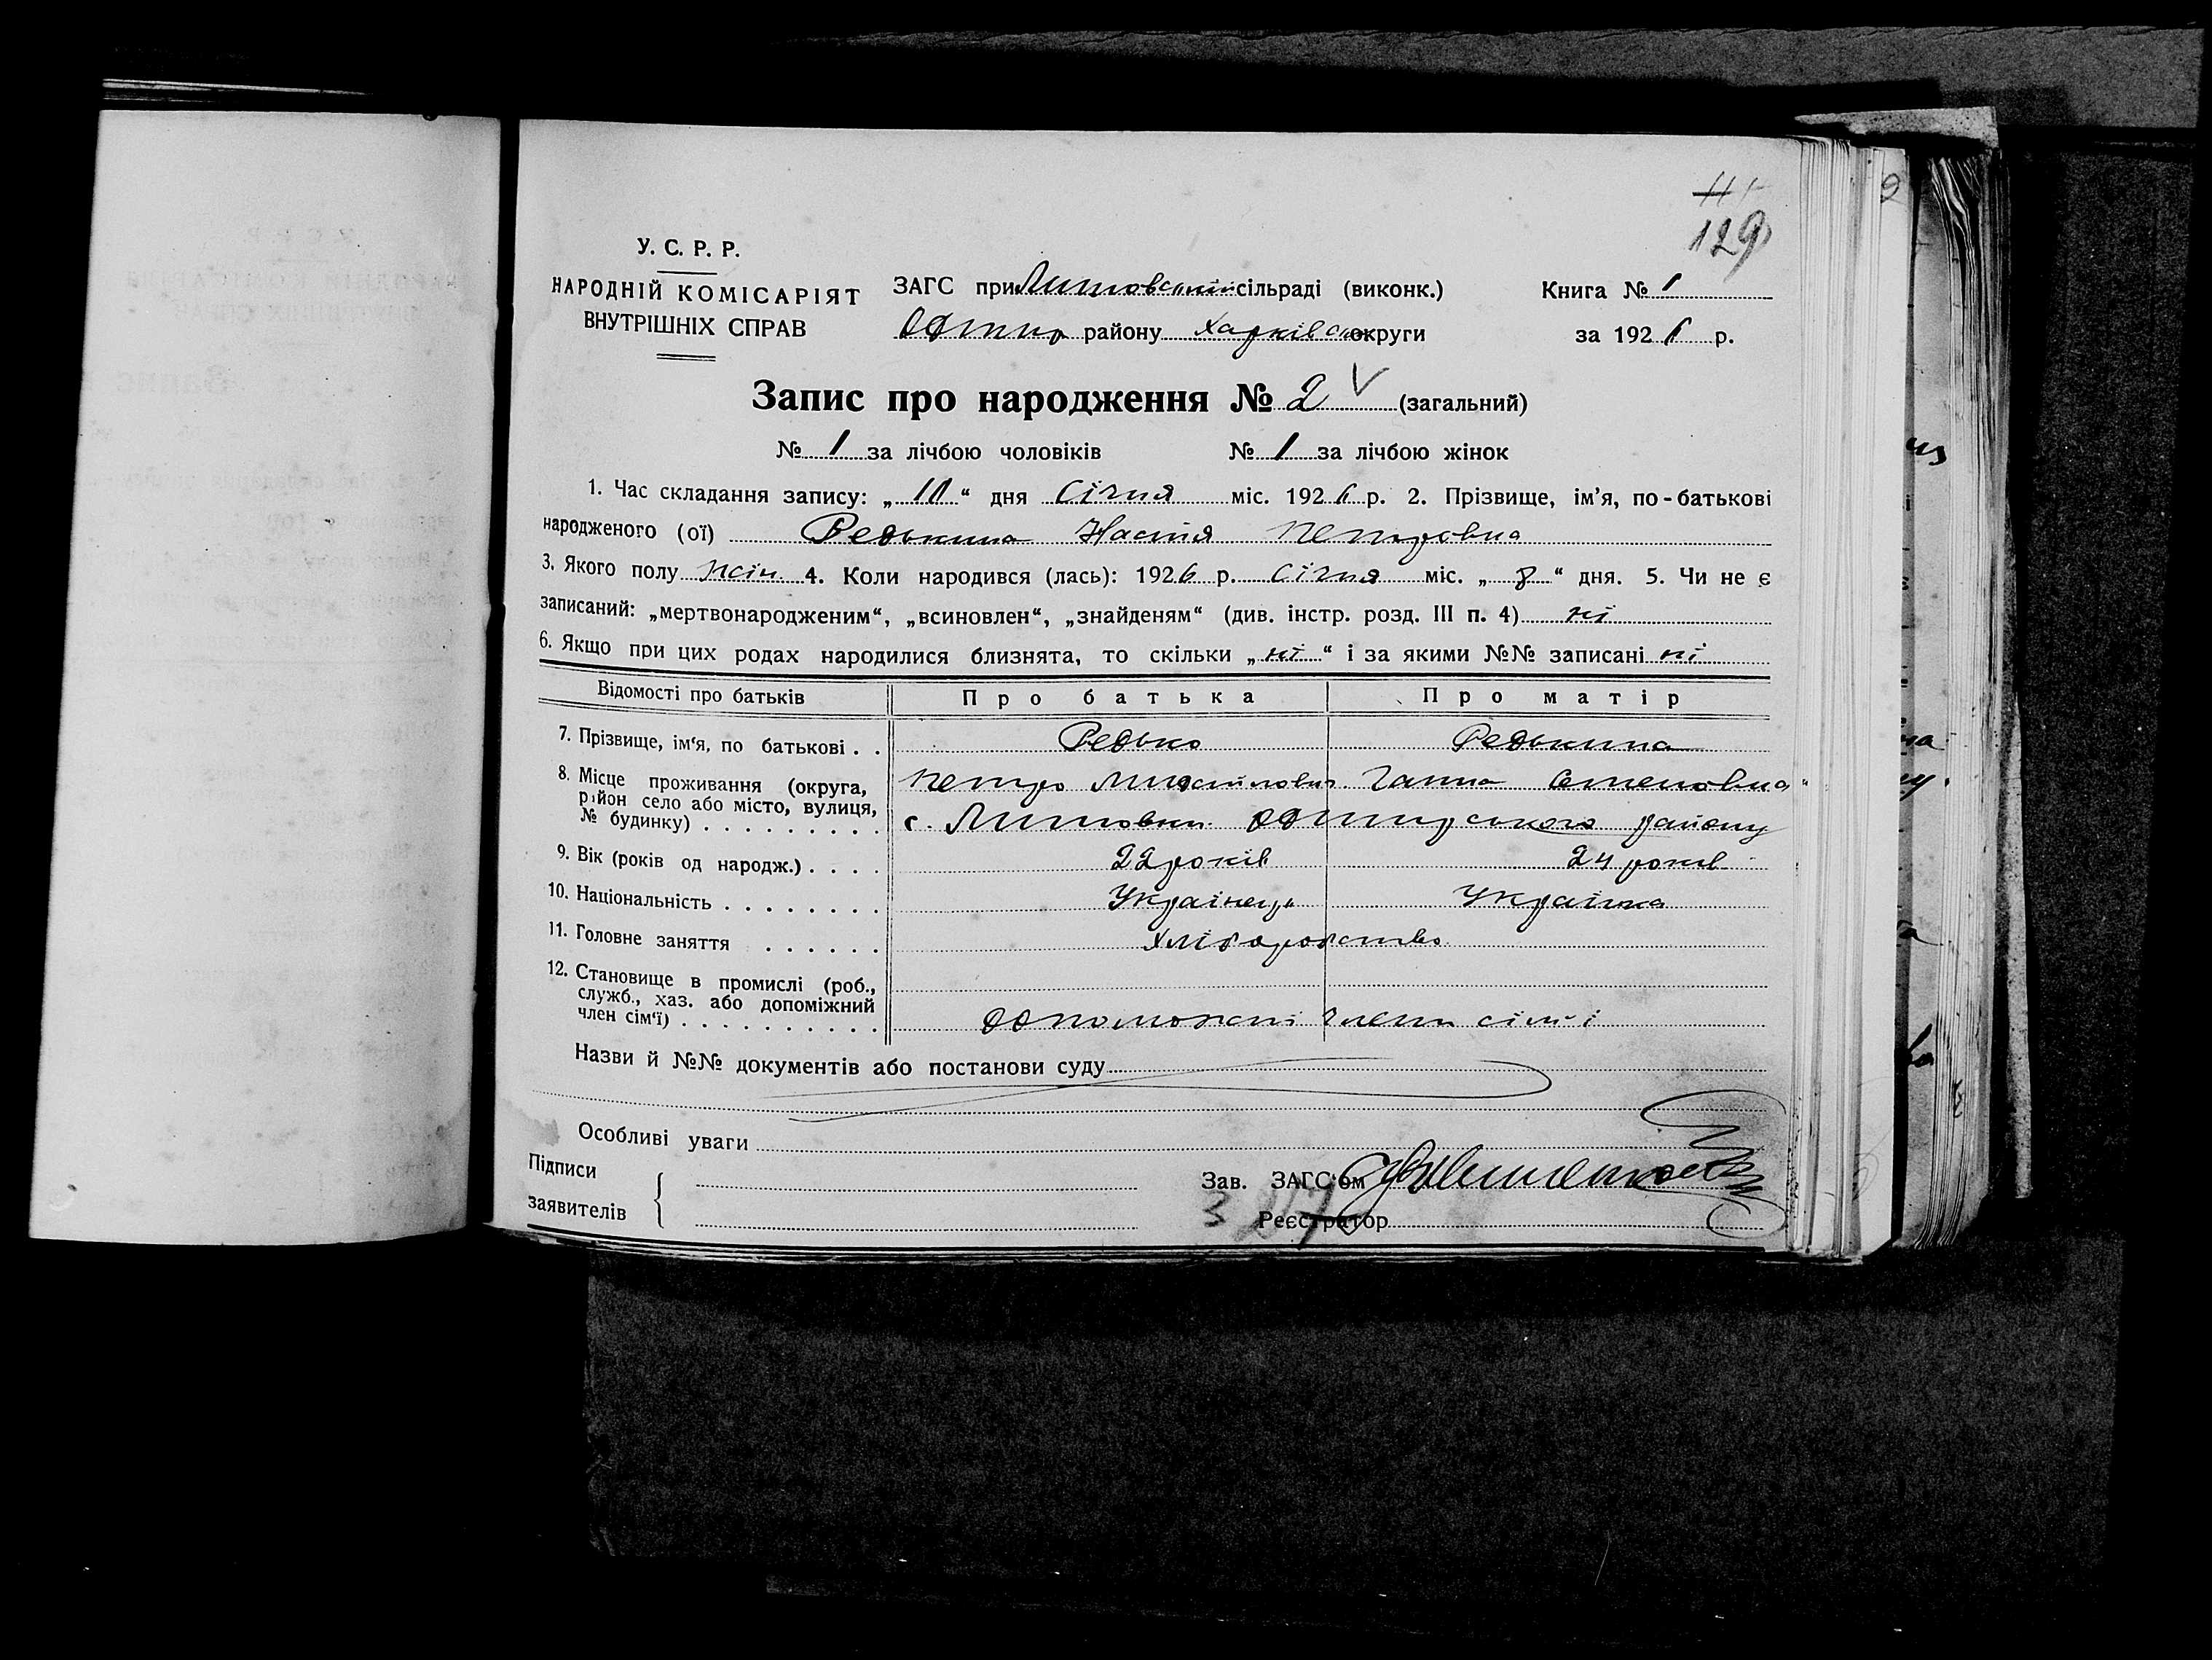 129
У. С. Р. Р.
НАРОДНІЙ КОМІСАРІЯТ
ВНУТРІШНІХ СПРАВ
ЗАГС при Литовській сільраді (виконк.)
району Харківськ округи
Книга № 1
за 1926 р.
Запис про народження № 2 (загальний)
№ 1 за лічбою чоловіків № 1 за лічбою жінок
1. Час складання запису: „ “ дня Січня міс. 1926 р. 2. Прізвище, ім'я, по-батькові
народженого (ої) Редькина Настя Петровна
3. Якого полу жін. 4. Коли народився (лась): 1926 р. Січня міс. „ 8 “ дня. 5. Чи не є
записаний: „мертвонародженим“, „всиновлен“, „знайденям“ (див. інстр. розд. III п. 4) ні
6. Якщо при цих родах народилися близнята, то скільки „ ні “ і за якими №№ записані ні
Відомості про батьків Про батька Про матір
7. Прізвище, ім'я, по батькові . . Редько Редькина
Петро Михайлович Ганна Семеновна
8. Місце проживання (округа,
район село або місто, вулиця,
№ будинку) . . . . . . . . . с. Литовки району
9. Вік (років од народж.) . . . . 22 років 24 років
10. Національність . . . . . . . . Українець Українка
11. Головне заняття . . . . . . Хліборобство
12. Становище в промислі (роб.,
служб., хаз. або допоміжний
член сім'ї) . . . . . . . . . . допоможні члени сім'ї
Назви й №№ документів або постанови суду
Особливі уваги
Підписи
заявителів
Зав. ЗАГС'ом
Реєстратор